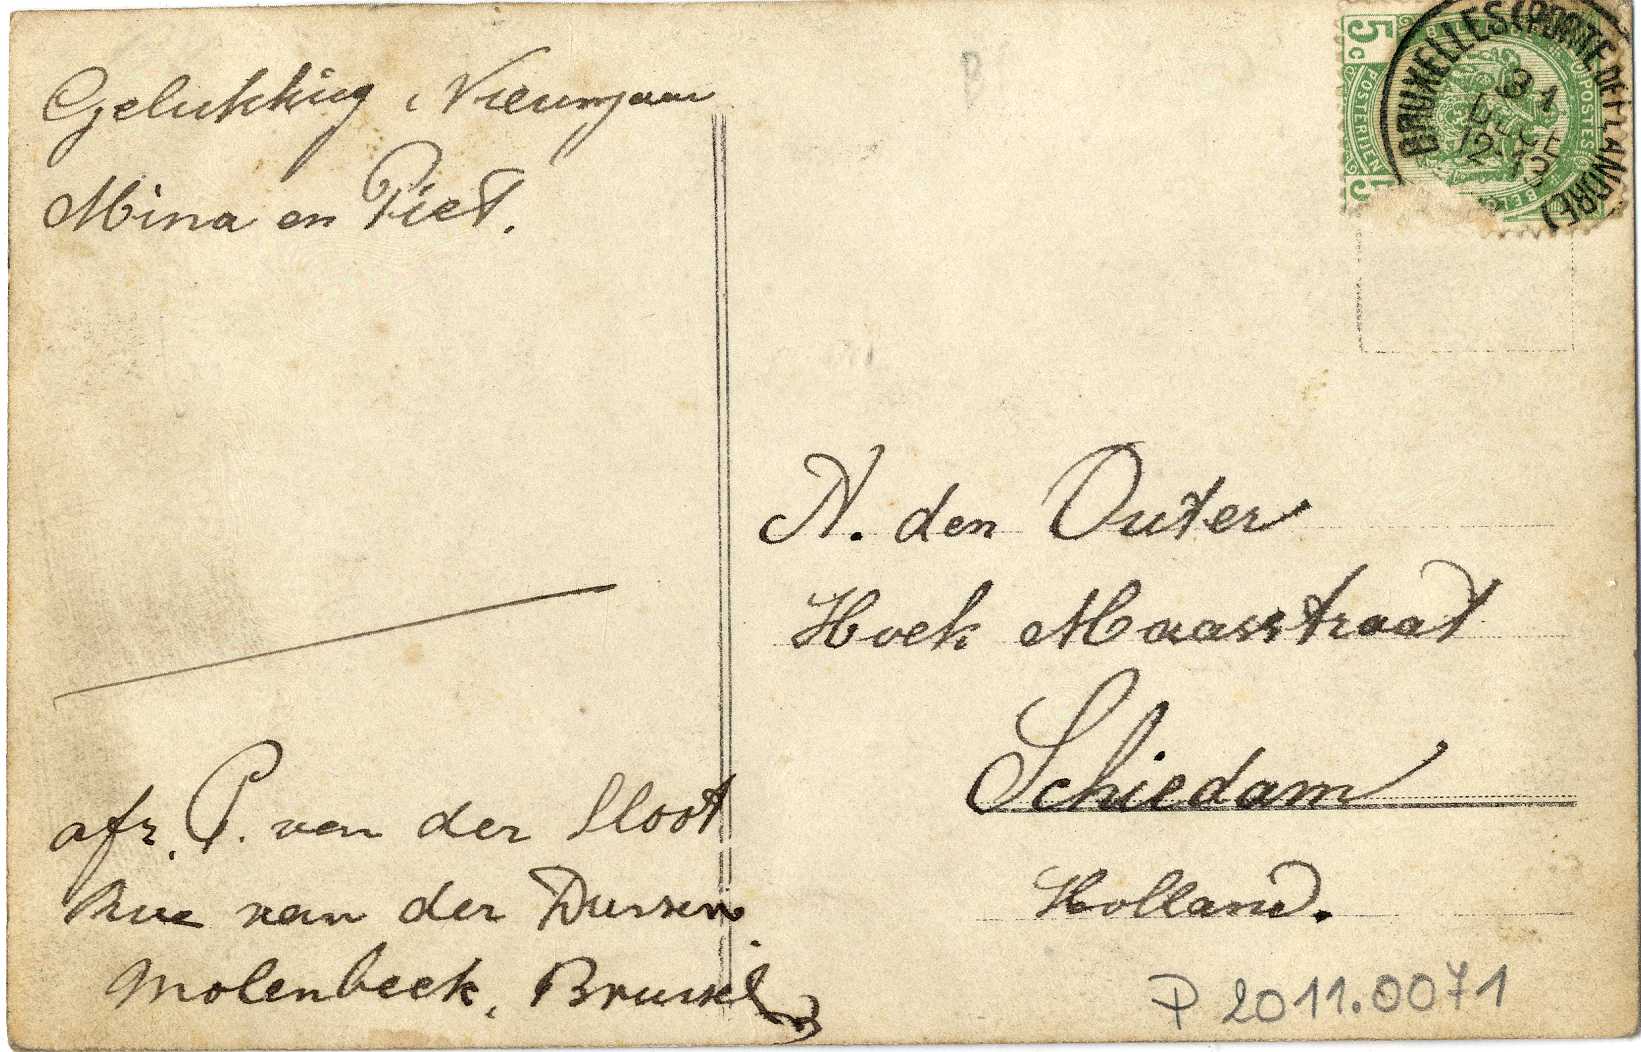 Gelukkig Nieuwjaar
Mina en Piet.
afz. P. van der Sloot
Rue van der Dussen
Molenbeek, Brussel
N. den Outer
Hoek Maasstraat
Schiedam
Holland.
P 2011.0071
5c
POSTES
POSTERIJEN
5
BRUXELLES (PORTE DE FLANDRE)
31
DEC
12
13